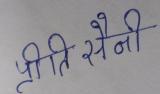 प्रीति सैनी